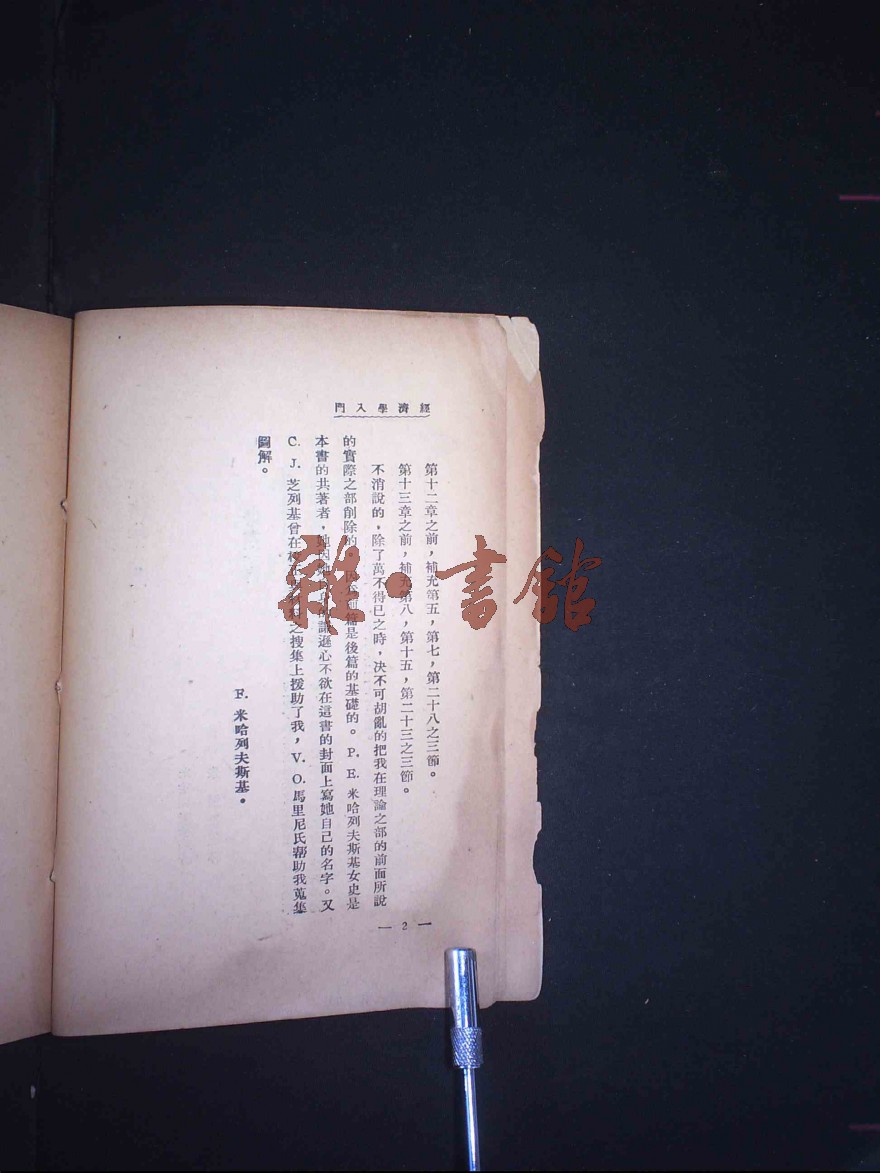 經濟學入門
第十二章之前，補充第五，第七，第二十八之三節。
第十三章之前，補充第八，第十五，第二十三之三節。
不消說的，除了萬不得已之時，决不可胡亂的把我在理論之部的前面所說
的實際之部削除的。篇是後篇的基礎的。P. E. 米哈列夫斯基女史是
本書的共著者，她因她遜心不欲在這書的封面上寫她自己的名字。又
C. J. 芝列基曾在之搜集上援助了我，V. O. 馬里尼氏幫助我蒐集
圖解。
F. 米哈列夫斯基。
— 2 —
雜·書館